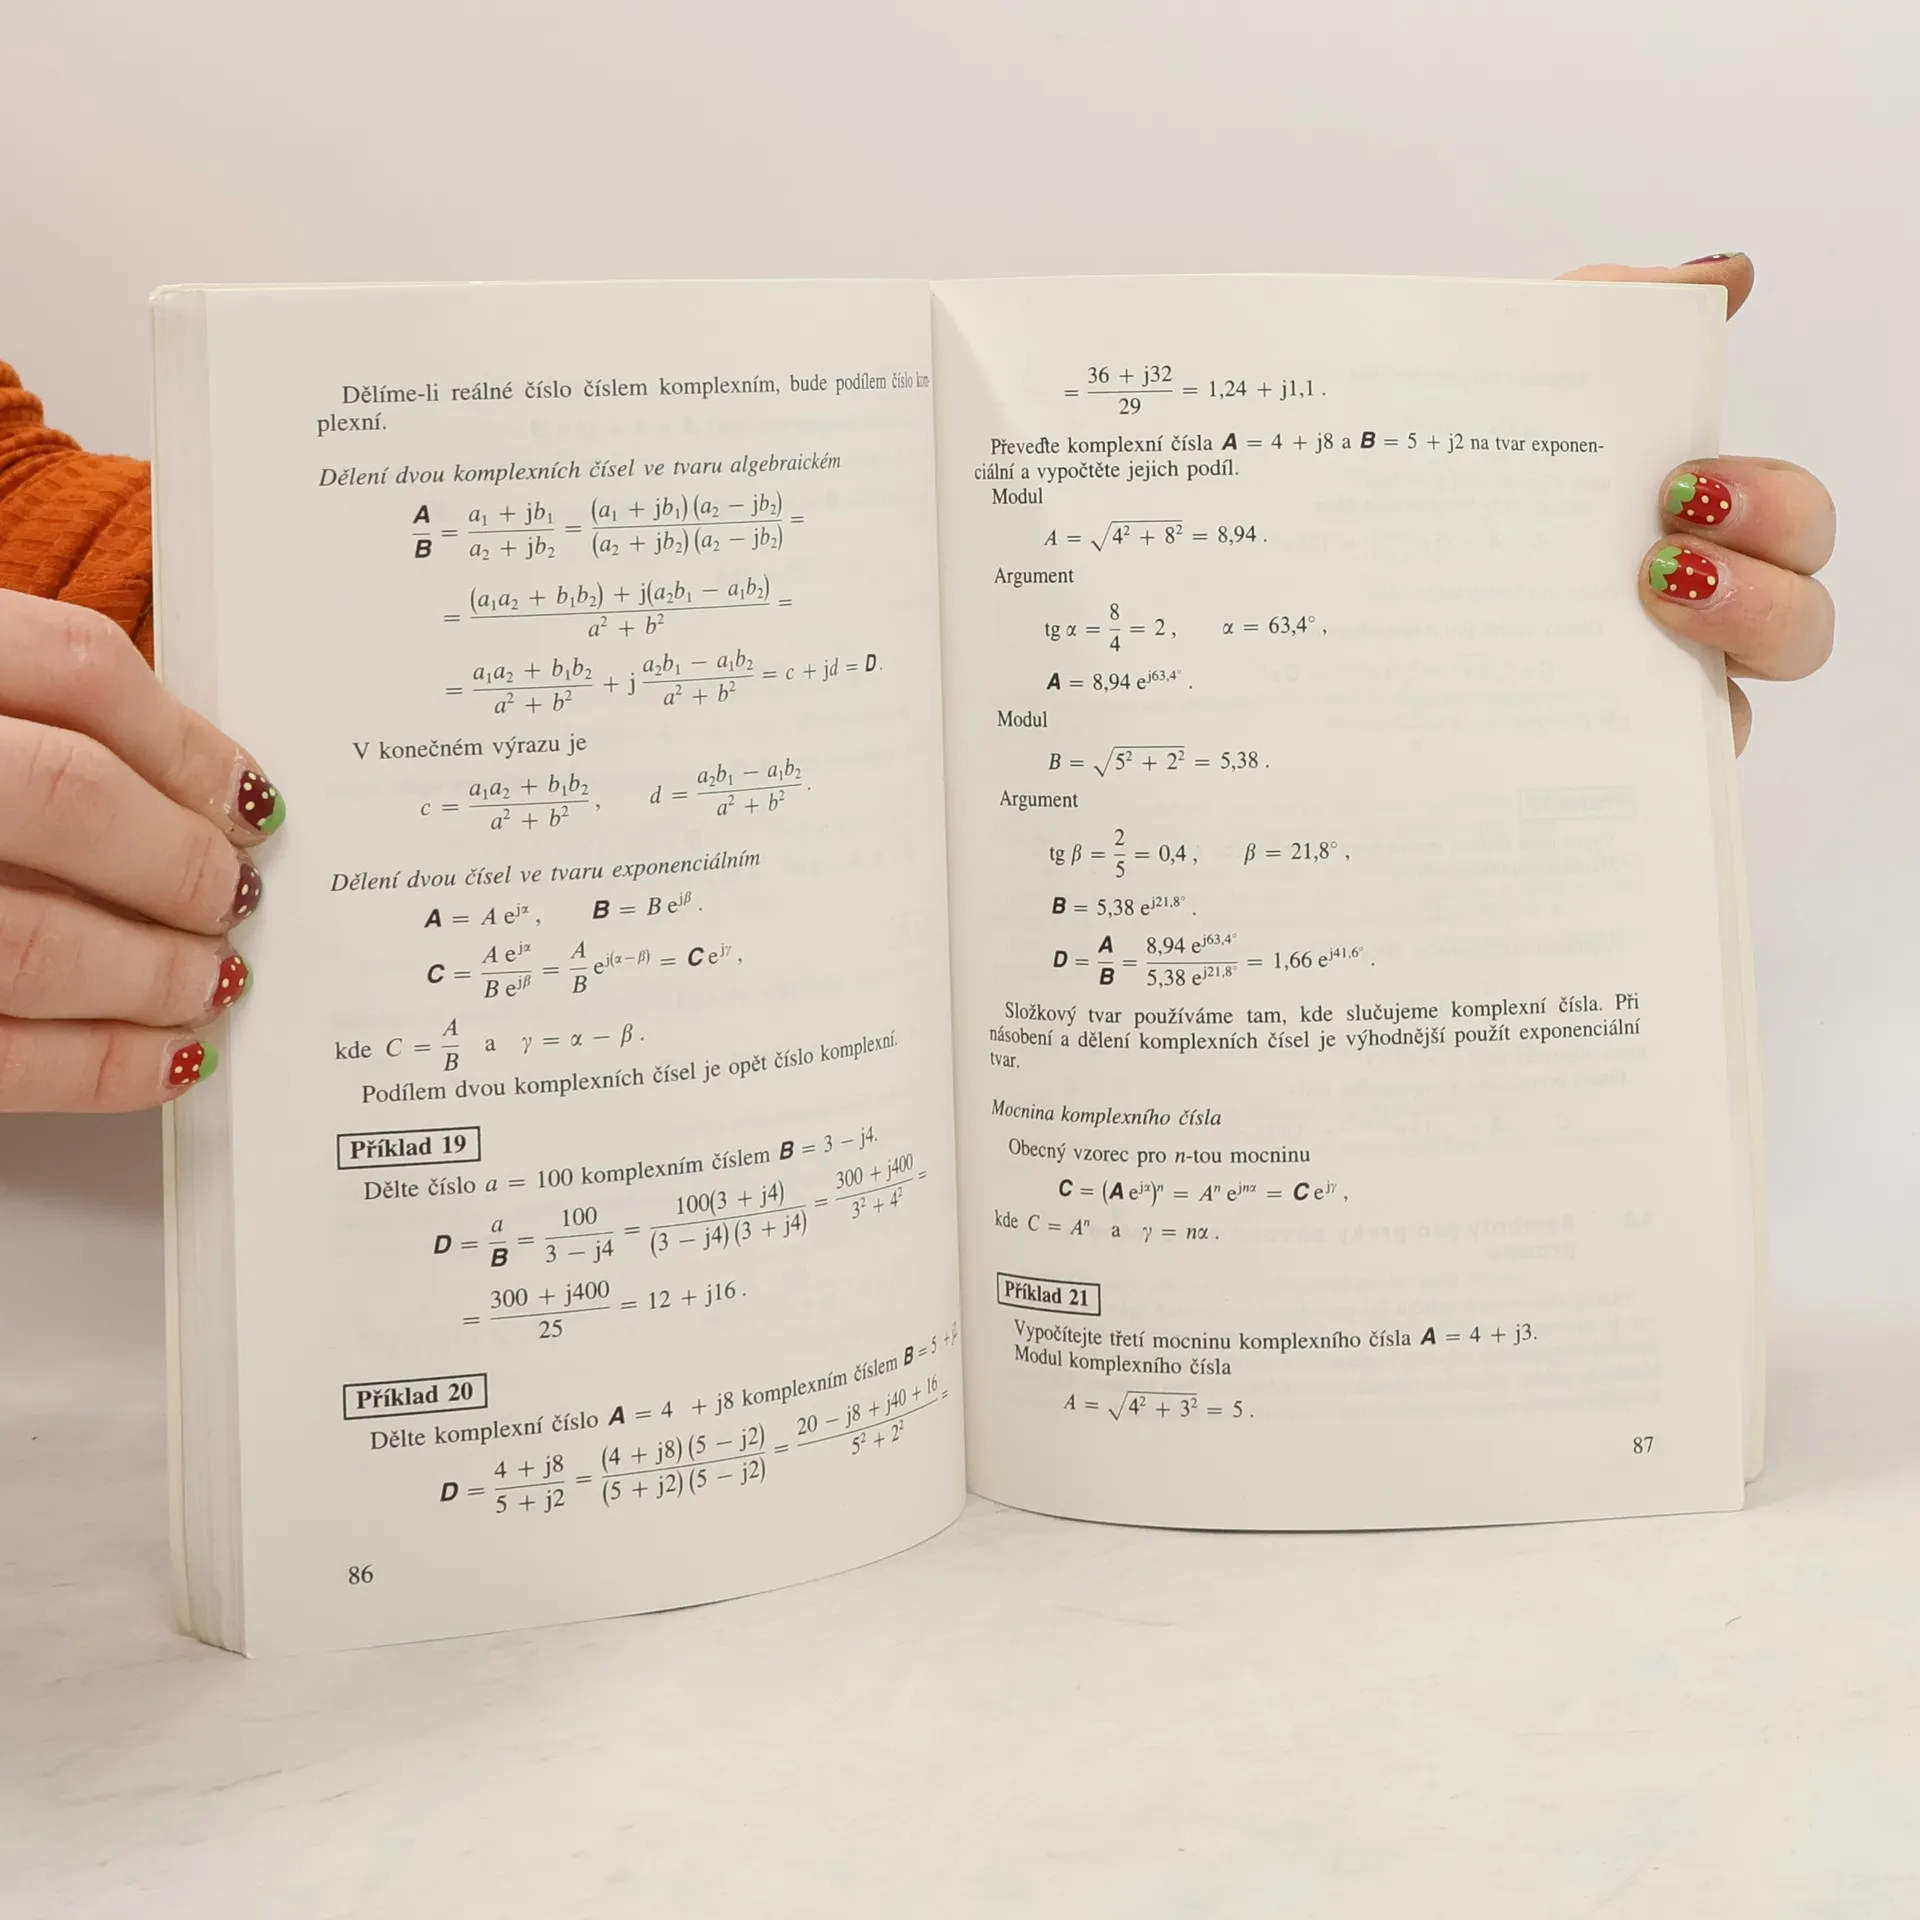 Dělíme-li reálné číslo číslem komplexním, bude podílem číslo kom-
plexní.
Dělení dvou komplexních čísel ve tvaru algebraickém
A/B = (a₁ + jb₁)/(a₂ + jb₂) = (a₁ + jb₁)(a₂ − jb₂)/(a₂ + jb₂)(a₂ − jb₂) =
= ((a₁a₂ + b₁b₂) + j(a₂b₁ − a₁b₂))/(a² + b²) =
= (a₁a₂ + b₁b₂)/(a² + b²) + j (a₂b₁ − a₁b₂)/(a² + b²) = c + jd = D.
V konečném výrazu je
c = (a₁a₂ + b₁b₂)/(a² + b²), d = (a₂b₁ − a₁b₂)/(a² + b²).
Dělení dvou čísel ve tvaru exponenciálním
A = A e^{jα}, B = B e^{jβ}.
C = A e^{jα}/B e^{jβ} = A/B e^{j(α−β)} = C e^{jγ},
kde C = A/B a γ = α − β.
Podílem dvou komplexních čísel je opět číslo komplexní.
Příklad 19
Dělte číslo a = 100 komplexním číslem B = 3 − j4.
D = a/B = 100/(3 − j4) = 100(3 + j4)/(3 − j4)(3 + j4) = (300 + j400)/(3² + 4²) =
= (300 + j400)/25 = 12 + j16.
Příklad 20
Dělte komplexní číslo A = 4 + j8 komplexním číslem B = 5 + j2
D = (4 + j8)/(5 + j2) = (4 + j8)(5 − j2)/(5 + j2)(5 − j2) = (20 − j8 + j40 + 16)/(5² + 2²) =
86
= (36 + j32)/29 = 1,24 + j1,1.
Převeďte komplexní čísla A = 4 + j8 a B = 5 + j2 na tvar exponen-
ciální a vypočtěte jejich podíl.
Modul
A = √(4² + 8²) = 8,94.
Argument
tg α = 8/4 = 2, α = 63,4°,
A = 8,94 e^{j63,4°}.
Modul
B = √(5² + 2²) = 5,38.
Argument
tg β = 2/5 = 0,4, β = 21,8°,
B = 5,38 e^{j21,8°}.
D = A/B = 8,94 e^{j63,4°}/5,38 e^{j21,8°} = 1,66 e^{j41,6°}.
Složkový tvar používáme tam, kde slučujeme komplexní čísla. Při
násobení a dělení komplexních čísel je výhodnější použít exponenciální
tvar.
Mocnina komplexního čísla
Obecný vzorec pro n-tou mocninu
C = (A e^{jα})ⁿ = Aⁿ e^{jnα} = C e^{jγ},
kde C = Aⁿ a γ = nα.
Příklad 21
Vypočítejte třetí mocninu komplexního čísla A = 4 + j3.
Modul komplexního čísla
A = √(4² + 3²) = 5.
87